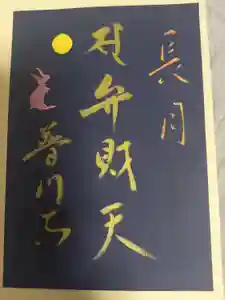 長月
弁財天
普門寺